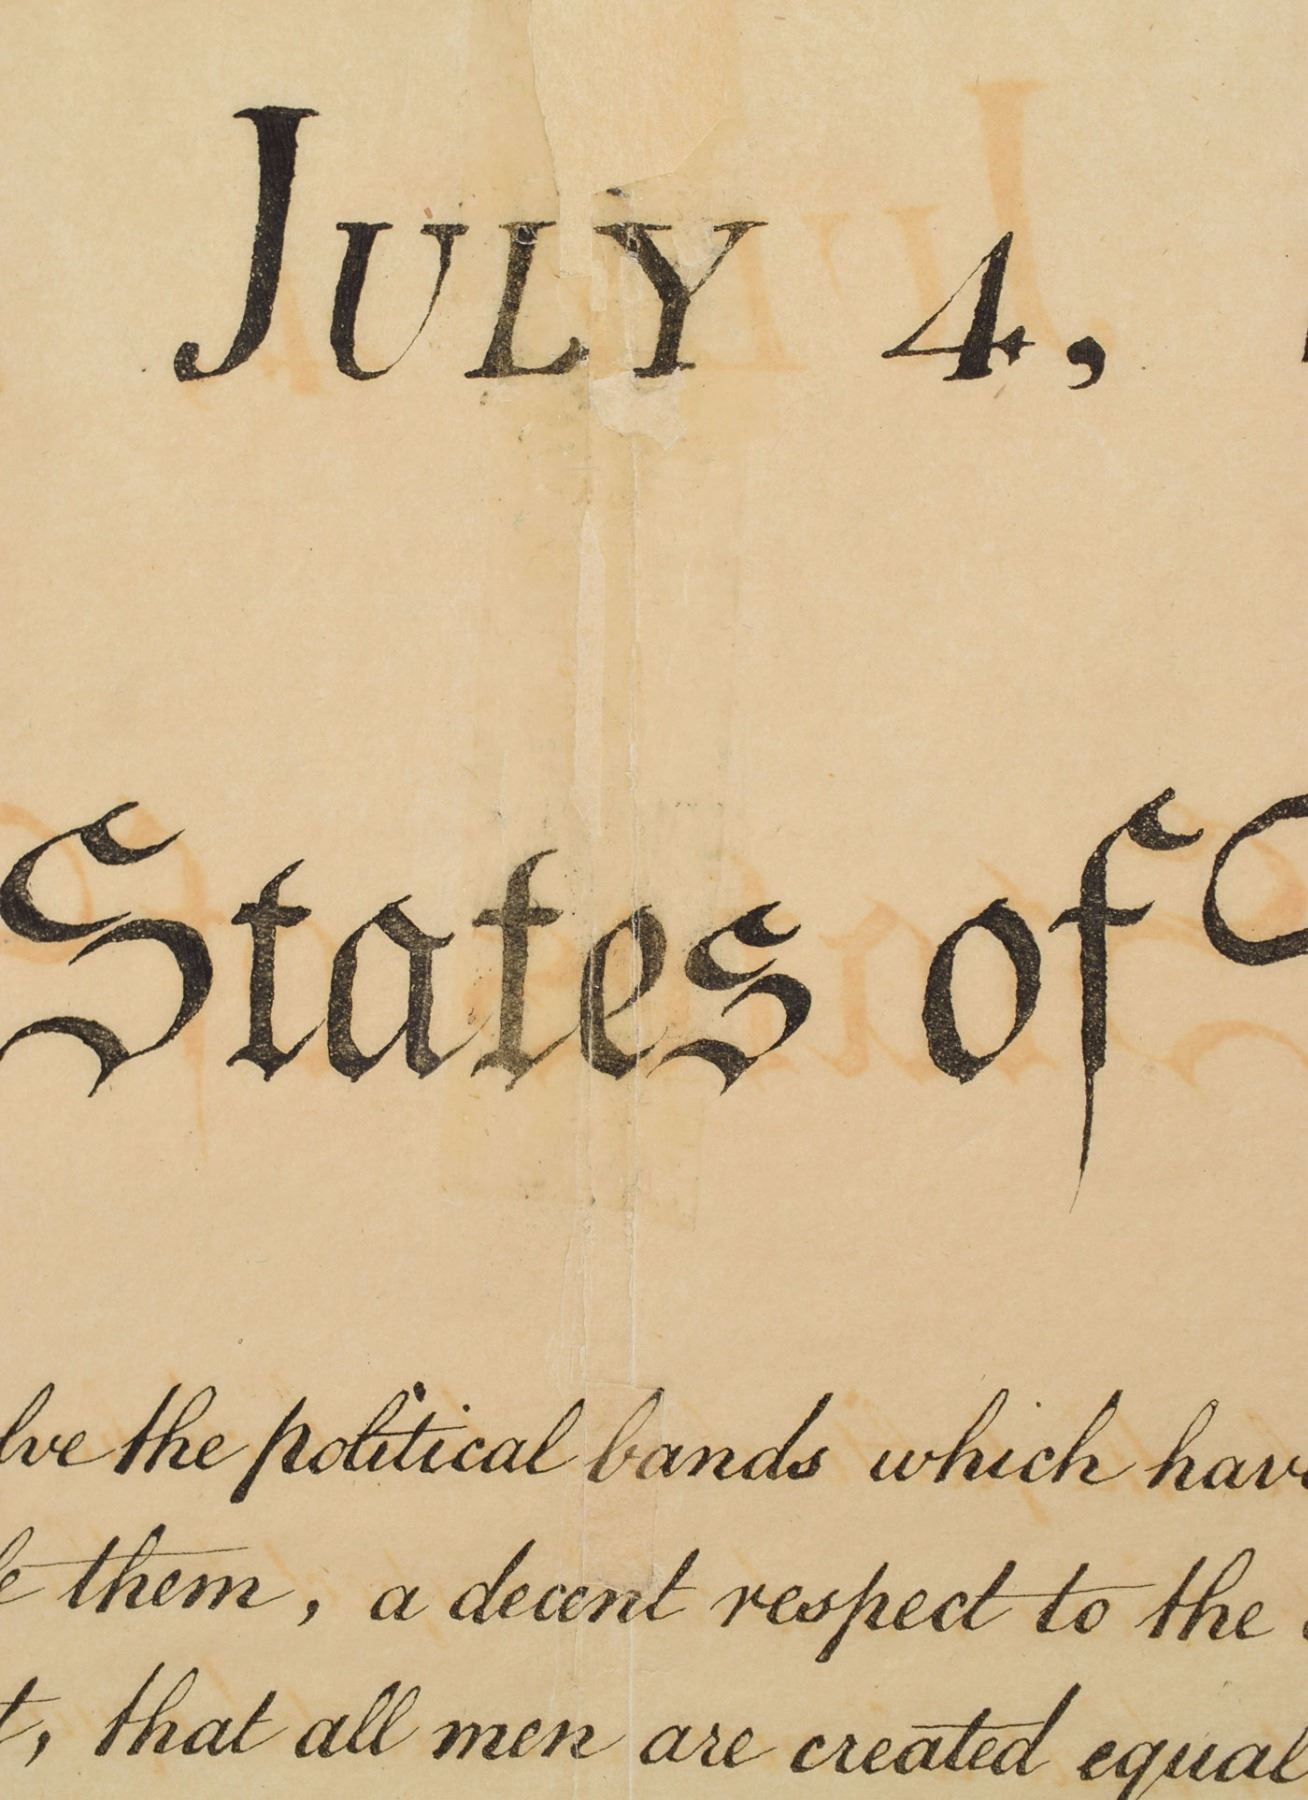 July 4,
States of
lve the political bands which have
them, a decent respect to the
t, that all men are created equal